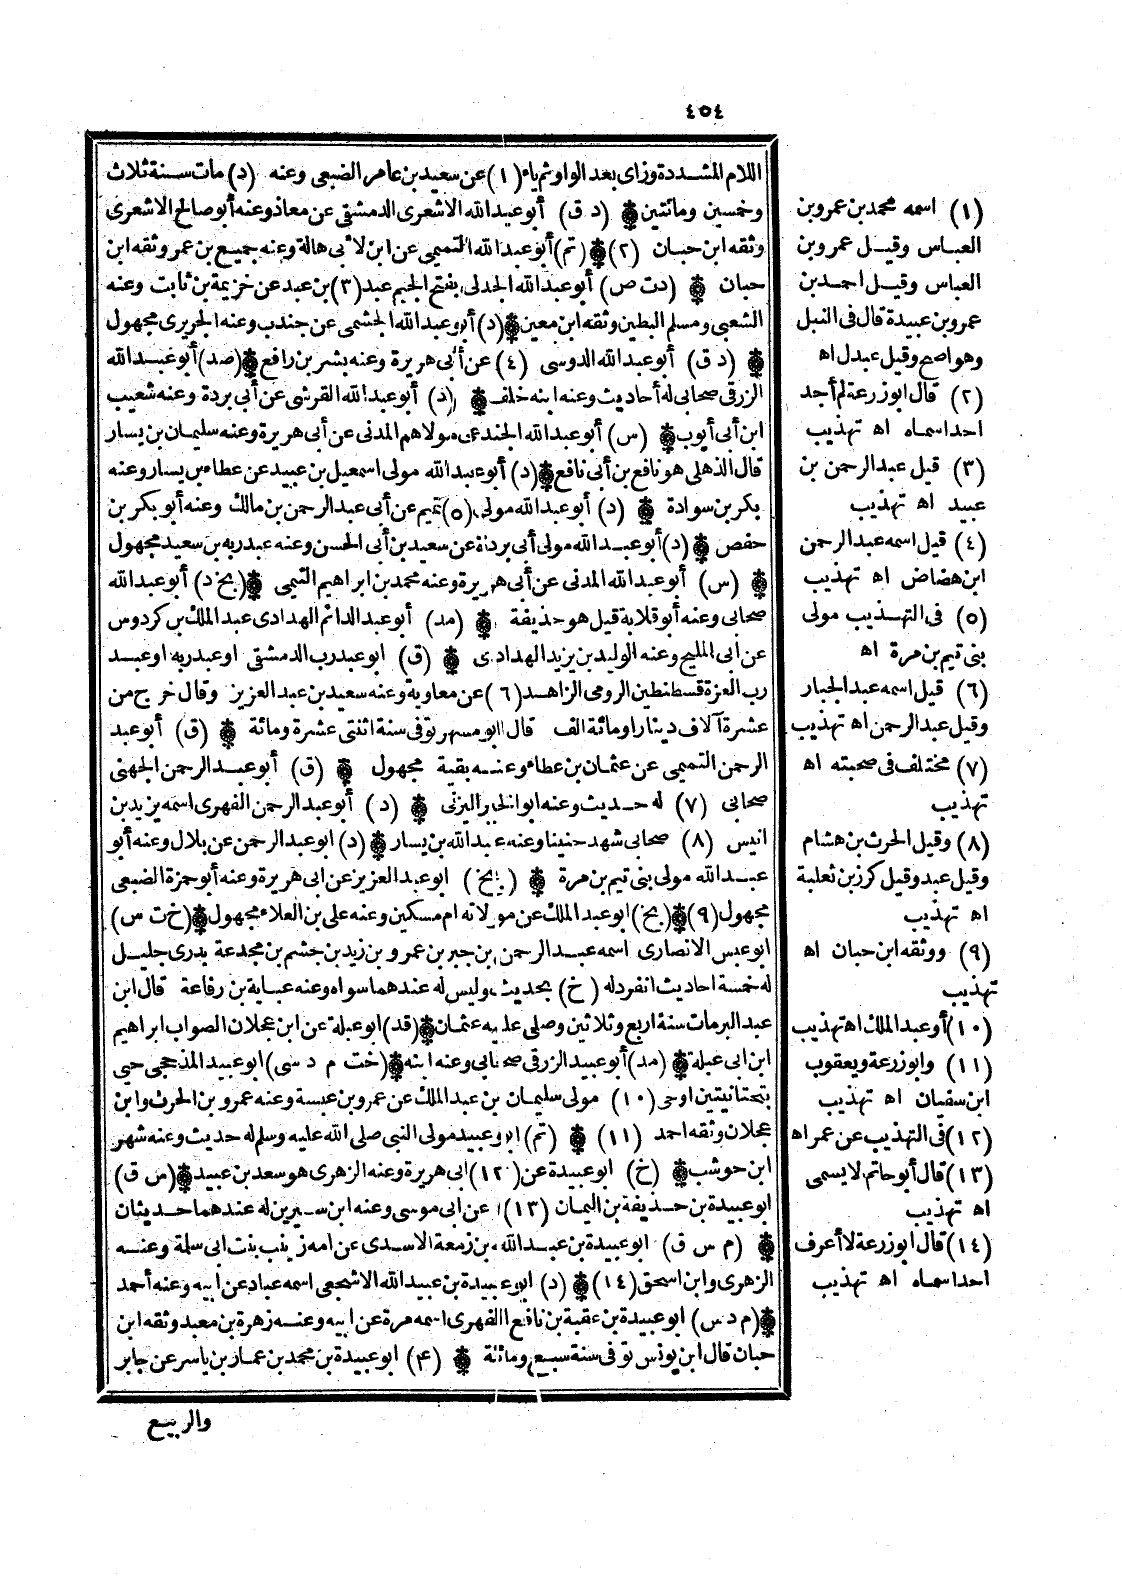 ٤٥٤
اللام المشددة وزاى بعد الواو ثم ياء (١) عن سعيد بن عامر الضبعى وعنه (د) مات سنة ثلاث
وخمسين ومائتين ۞ (د ق) أبو عبد الله الاشعرى الدمشقى عن معاذ وعنه أبو صالح الاشعرى
وثقه ابن حبان (٢) ۞ (تم) أبو عبد الله التميمى عن ابن لابى هالة وعنه جميع بن عمر وثقه ابن
حبان ۞ (د ت ص) أبو عبد الله الجدلى بفتح الجيم عبد (٣) بن عبد عن خزيمة بن ثابت وعنه
الشعبى ومسلم البطين وثقه ابن معين ۞ (د) أبو عبد الله الجشمى عن جندب وعنه الجريرى مجهول
۞ (د ق) أبو عبد الله الدوسى (٤) عن أبى هريرة وعنه بشر بن رافع ۞ (صد) أبو عبد الله
الزرقى صحابى له أحاديث وعنه ابنه خلف ۞ (د) أبو عبد الله القرشى عن أبى بردة وعنه شعيب
ابن أبى أيوب ۞ (س) أبو عبد الله الجندعى مولاهم المدنى عن أبى هريرة وعنه سليمان بن يسار
قال الذهلى هو نافع بن أبى نافع ۞ (د) أبو عبد الله مولى اسمعيل بن عبيد عن عطاء بن يسار وعنه
بكر بن سوادة ۞ (د) أبو عبد الله مولى (٥) تميم عن أبى عبد الرحمن بن مالك وعنه أبو بكر بن
حفص ۞ (د) أبو عبد الله مولى أبى بردة عن سعيد بن أبى الحسن وعنه عبد ربه بن سعيد مجهول
۞ (س) أبو عبد الله المدنى عن أبى هريرة وعنه محمد بن ابراهيم التيمى ۞ (بخ د) أبو عبد الله
صحابى وعنه أبو قلابة قيل هو حذيفة ۞ (مد) أبو عبد الدائم الهدادى عبد الملك بن كردوس
عن ابى المليح وعنه الوليد بن يزيد الهدادى ۞ (ق) ابو عبد رب الدمشقى او عبد ربه او عبد
رب العزة قسطنطين الرومى الزاهد (٦) عن معاوية وعنه سعيد بن عبد العزيز وقال خرج من
عشرة آلاف دينار او مائة الف قال ابو مسهر توفى سنة اثنتى عشرة ومائة ۞ (ق) أبو عبد
الرحمن التميمى عن عثمان بن عطاء وعنه بقية مجهول ۞ (ق) أبو عبد الرحمن الجهنى
صحابى (٧) له حديث وعنه ابو الخير اليزنى ۞ (د) أبو عبد الرحمن الفهرى اسمه يزيد بن
انيس (٨) صحابى شهد حنينا وعنه عبد الله بن يسار ۞ (د) ابو عبد الرحمن عن بلال وعنه أبو
عبد الله مولى بنى تيم بن مرة ۞ (بخ) ابو عبد العزيز عن ابى هريرة وعنه أبو حمزة الضبعى
مجهول (٩) ۞ (بخ) ابو عبد الملك عن مولاته ام مسكين وعنه على بن العلاء مجهول ۞ (خ ت س)
ابو عبس الانصارى اسمه عبد الرحمن بن جبر بن عمرو بن زيد بن جشم بن مجدعة بدرى جليل
له خمسة احاديث انفرد له (خ) بحديث وليس له عندهما سواه وعنه عباية بن رفاعة قال ابن
عبد البر مات سنة اربع وثلاثين وصلى عليه عثمان ۞ (قد) ابو عبلة عن ابن عجلان الصواب ابراهيم
ابن ابى عبلة ۞ (مد) أبو عبيد الزرقى صحابى وعنه ابنه ۞ (خت م د سى) ابو عبيد المذحجى حيى
بتحتانيتين اوحى (١٠) مولى سليمان بن عبد الملك عن عمرو بن عبسة وعنه عمرو بن الحرث وابن
عجلان وثقه احمد (١١) ۞ (تم) ابو عبيد مولى النبى صلى الله عليه وسلم له حديث وعنه شهر
ابن حوشب ۞ (خ) ابو عبيدة عن (١٢) ابى هريرة وعنه الزهرى هو سعد بن عبيد ۞ (س ق)
ابو عبيدة بن حذيفة بن اليمان (١٣) عن ابى موسى وعنه ابن سيرين له عندهما حديثان
۞ (م س ق) ابو عبيدة بن عبد الله بن زمعة الاسدى عن امه زينب بنت ابى سلمة وعنه
الزهرى وابن اسحق (١٤) ۞ (د) ابو عبيدة بن عبيد الله الاشجعى اسمه عباد عن ابيه وعنه أحمد
۞ (م د س) ابو عبيدة بن عقبة بن نافع الفهرى اسمه مرة عن ابيه وعنه زهرة بن معبد وثقه ابن
حبان قال ابن يونس توفى سنة سبع ومائة ۞ (٤) ابو عبيدة بن محمد بن عمار بن ياسر عن جابر
والربيع
(١) اسمه محمد بن عمرو بن
العباس وقيل عمرو بن
العباس وقيل احمد بن
عمرو بن عبيدة قال فى النبل
وهو اصح وقيل عبدل اه
(٢) قال ابو زرعة لم أجد
احدا سماه اه تهذيب
(٣) قيل عبد الرحمن بن
عبيد اه تهذيب
(٤) قيل اسمه عبد الرحمن
ابن هضاض اه تهذيب
(٥) فى التهذيب مولى
بنى تيم بن مرة اه
(٦) قيل اسمه عبد الجبار
وقيل عبد الرحمن اه تهذيب
(٧) مختلف فى صحبته اه
تهذيب
(٨) وقيل الحرث بن هشام
وقيل عبد وقيل كرز بن ثعلبة
اه تهذيب
(٩) ووثقه ابن حبان اه
تهذيب
(١٠) أو عبد الملك اه تهذيب
(١١) وابو زرعة ويعقوب
ابن سفيان اه تهذيب
(١٢) فى التهذيب عن عمر اه
(١٣) قال أبو حاتم لا يسمى
اه تهذيب
(١٤) قال ابو زرعة لا أعرف
احدا سماه اه تهذيب